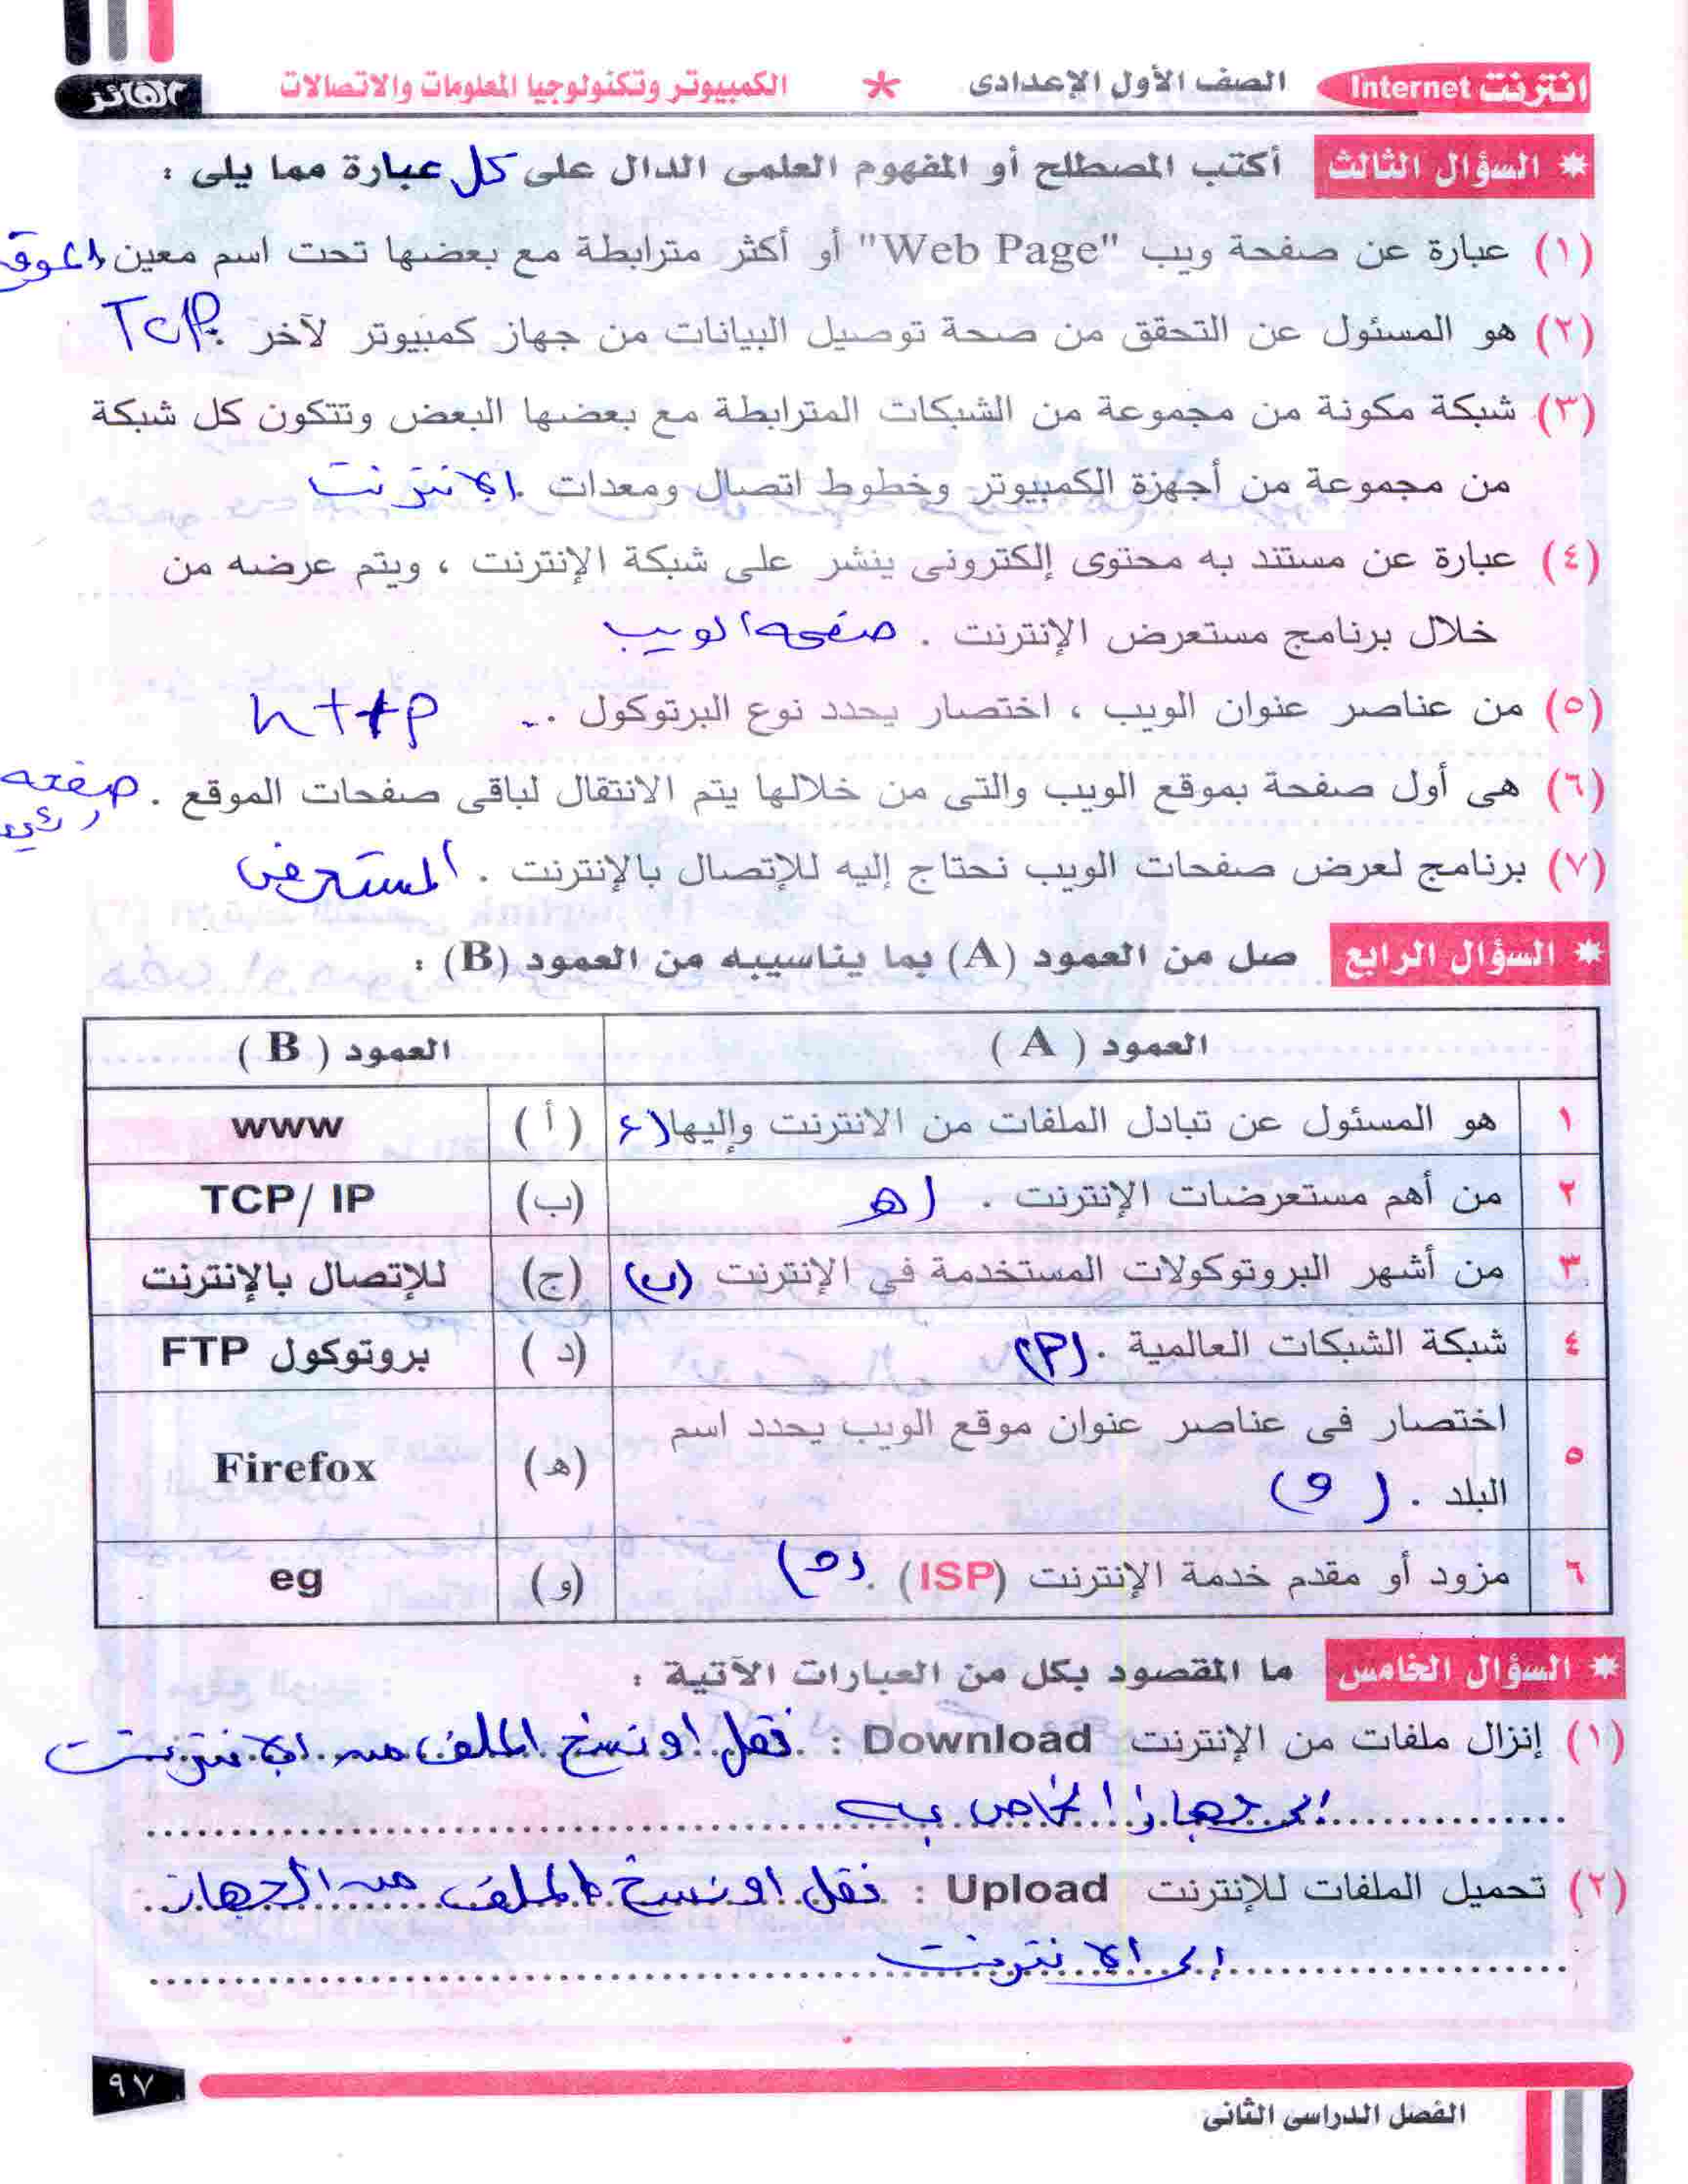 انترنت Internet الصف الأول الإعدادى * الكمبيوتر وتكنولوجيا المعلومات والاتصالات الفائز
* السؤال الثالث أكتب المصطلح أو المفهوم العلمى الدال على كل عبارة مما يلى :
(١) عبارة عن صفحة ويب "Web Page" أو أكثر مترابطة مع بعضها تحت اسم معين
(٢) هو المسئول عن التحقق من صحة توصيل البيانات من جهاز كمبيوتر لآخر . TCP
(٣) شبكة مكونة من مجموعة من الشبكات المترابطة مع بعضها البعض وتتكون كل شبكة
من مجموعة من أجهزة الكمبيوتر وخطوط اتصال ومعدات . الانترنت
(٤) عبارة عن مستند به محتوى إلكترونى ينشر على شبكة الإنترنت ، ويتم عرضه من
خلال برنامج مستعرض الإنترنت . صفحه الويب
(٥) من عناصر عنوان الويب ، اختصار يحدد نوع البرتوكول .. http
(٦) هى أول صفحة بموقع الويب والتى من خلالها يتم الانتقال لباقى صفحات الموقع . صفحه
(٧) برنامج لعرض صفحات الويب نحتاج إليه للإتصال بالإنترنت . المستعرض
* السؤال الرابع صل من العمود (A) بما يناسيبه من العمود (B) :
العمود ( A ) العمود ( B )
١ هو المسئول عن تبادل الملفات من الانترنت وإليها (أ) www
٢ من أهم مستعرضات الإنترنت . (هـ (ب) TCP/ IP
٣ من أشهر البروتوكولات المستخدمة فى الإنترنت (ب) (ج) للإتصال بالإنترنت
٤ شبكة الشبكات العالمية . (م) (د) بروتوكول FTP
اختصار فى عناصر عنوان موقع الويب يحدد اسم
٥ البلد . (و) (هـ) Firefox
٦ مزود أو مقدم خدمة الإنترنت (ISP) . (و) eg
* السؤال الخامس ما المقصود بكل من العبارات الآتية :
(١) إنزال ملفات من الإنترنت Download : نقل او نسخ الملف من الانترنت
الى جهاز الخاص به
(٢) تحميل الملفات للإنترنت Upload : نقل او نسخ الملف من الجهاز
إلى الانترنت
٩٧
الفصل الدراسى الثانى